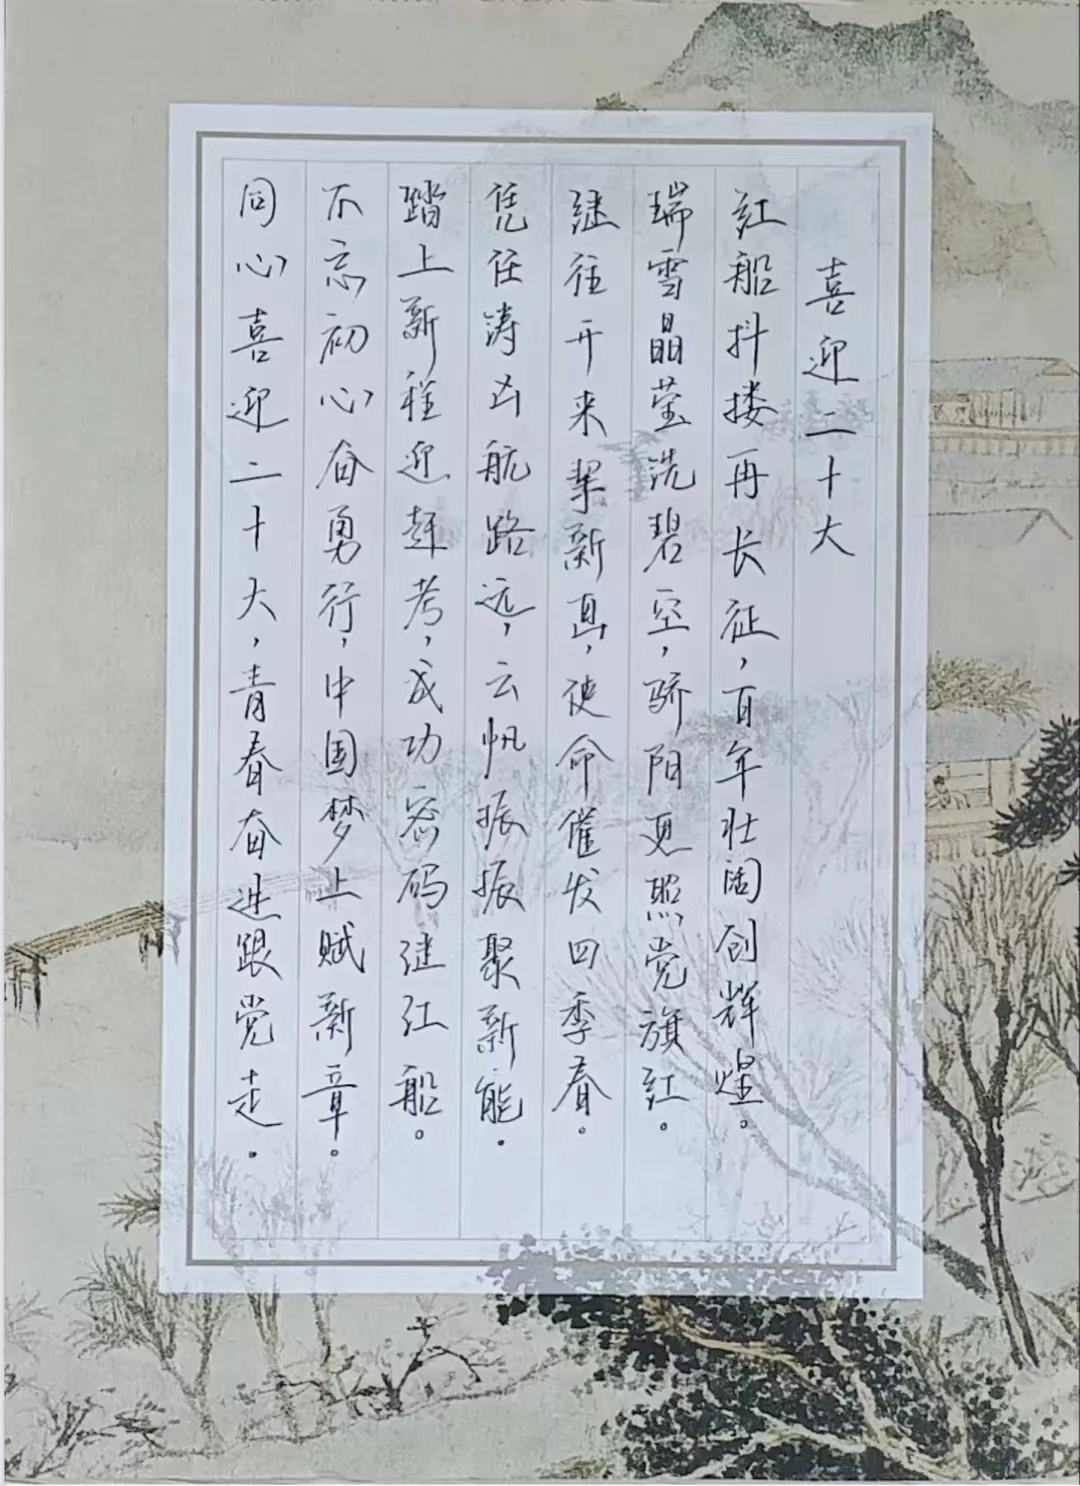 喜迎二十大
红船抖搂再长征，百年壮阔创辉煌。
瑞雪晶莹洗碧空，骄阳更照党旗红。
继往开来挈新画，使命催发四季春。
凭任涛凶航路远，云帆振振聚新能。
踏上新程迎赶考，成功密码继红船。
不忘初心奋勇行，中国梦上赋新章。
同心喜迎二十大，青春奋进跟党走。